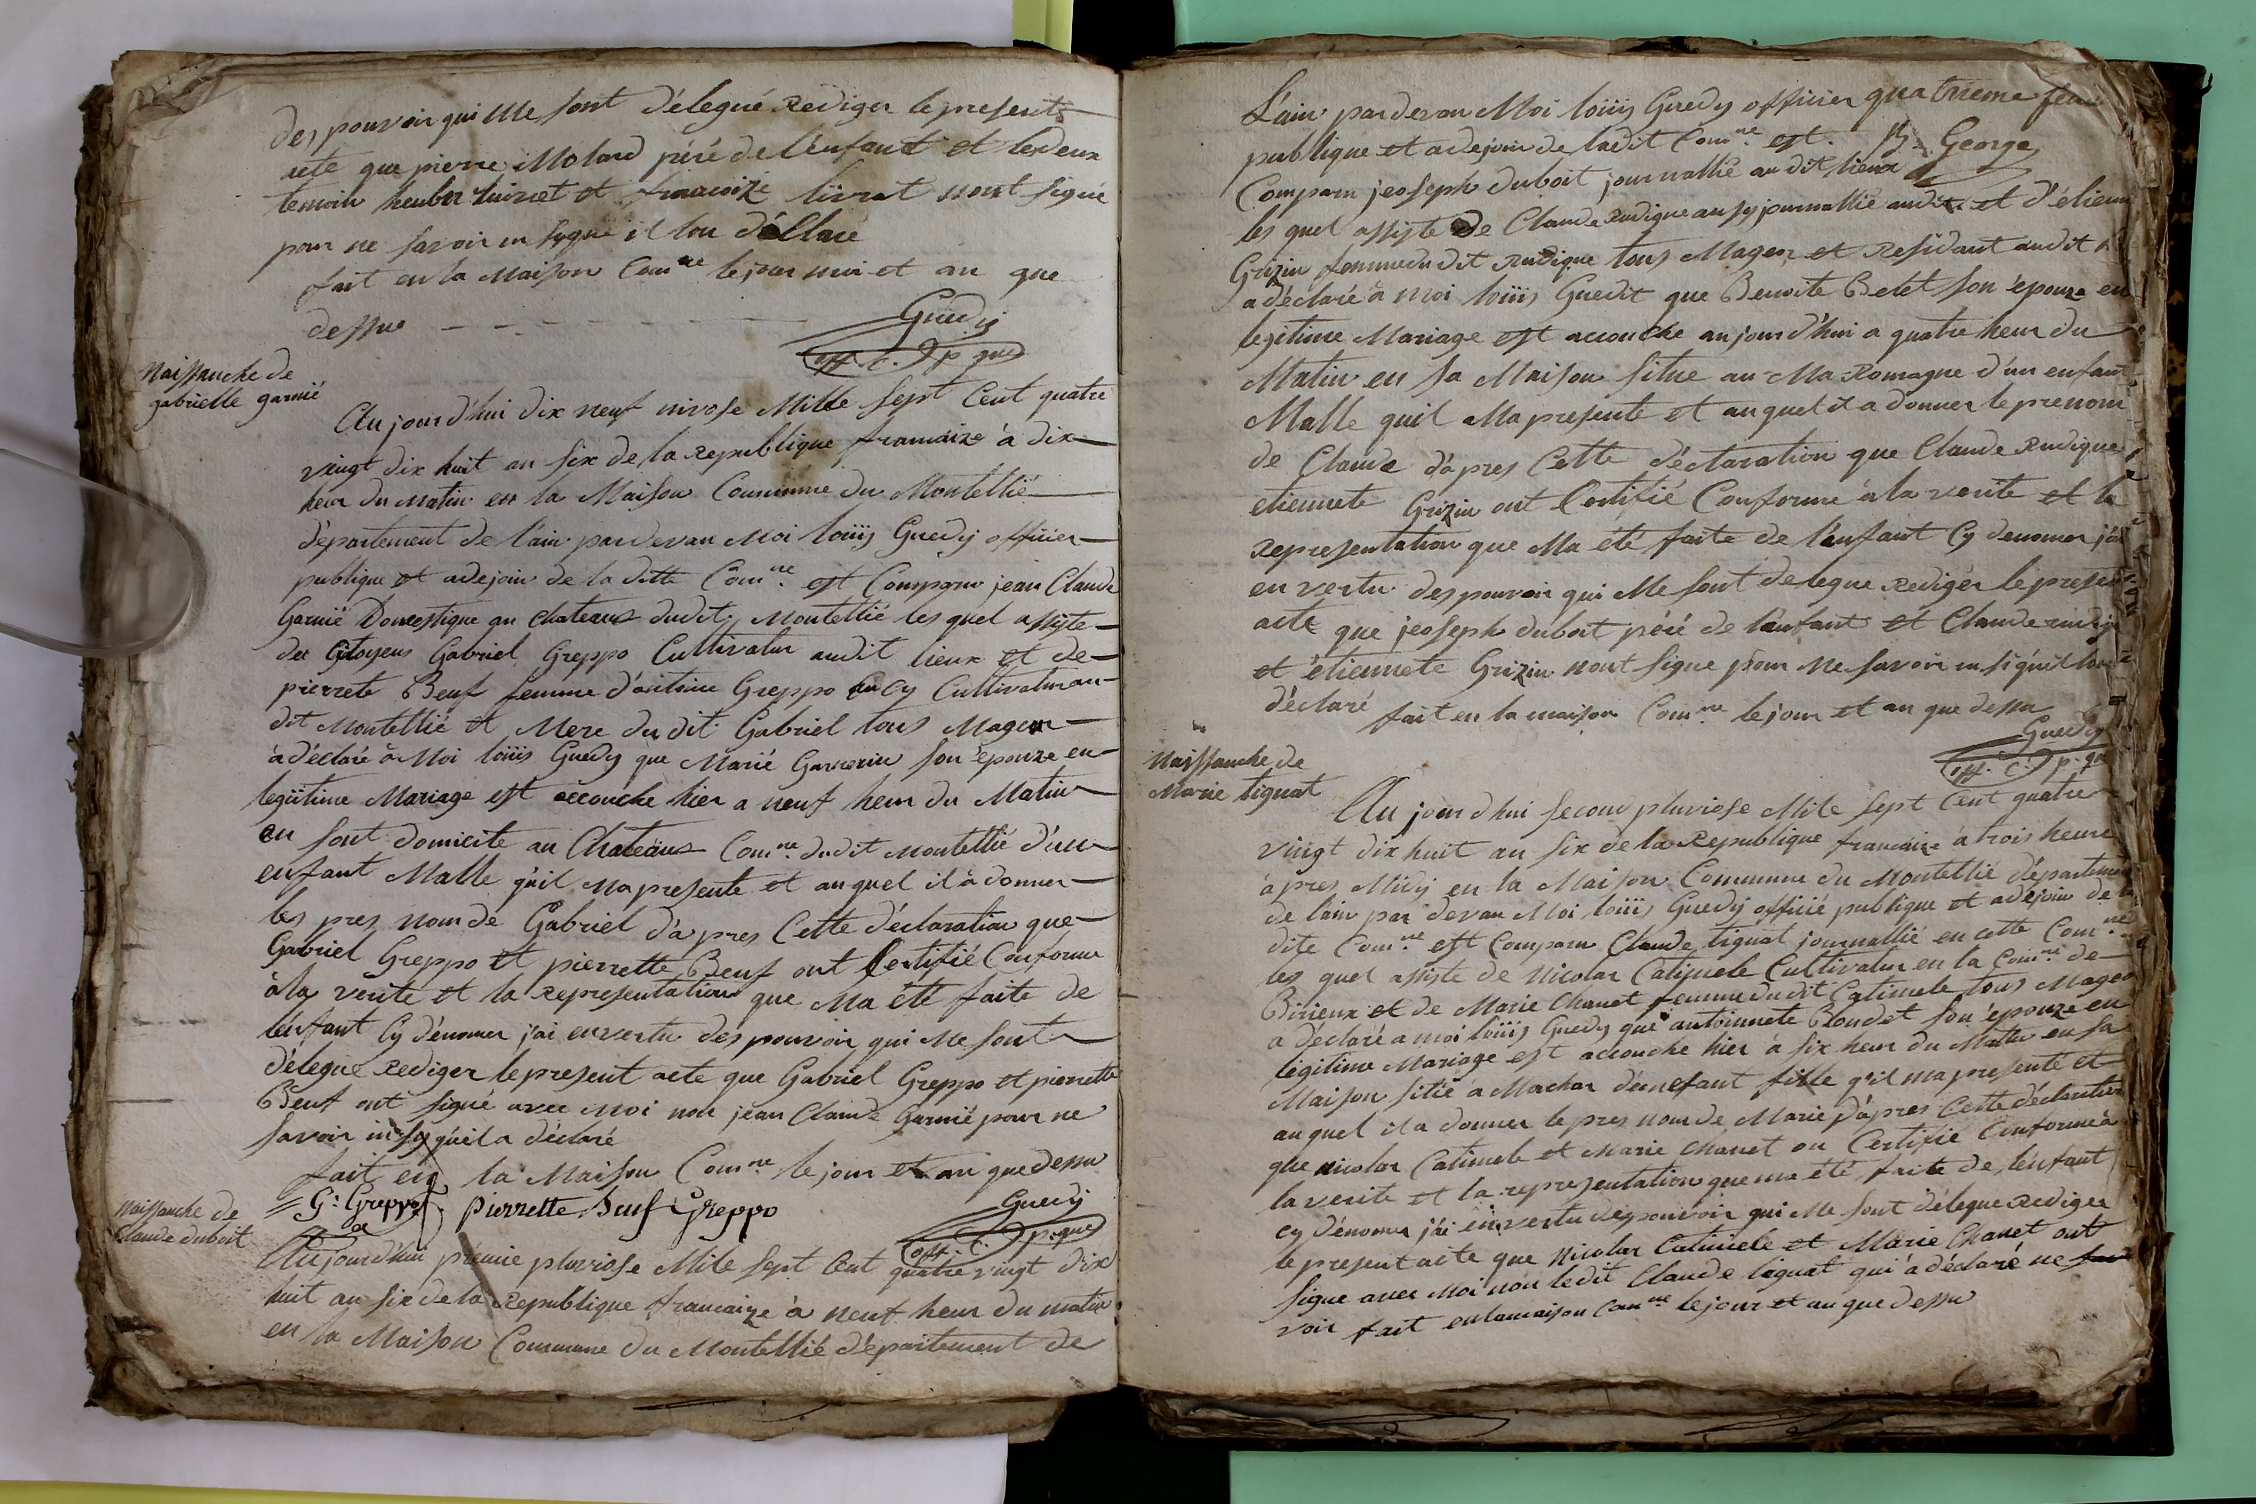 des pouvoir qui Me sont délegué Rédiger le present
acte que pierre Molard péré de l'Enfant et les deux
temoin heuber et francoize livrat nont signé
pour ne savoir en sygné il lon déllaré
fait en la Maison Com.ne le jour moi et an que
dessus
Guedy
off. c. p. que
Naissanche de
gabrielle garnié
Au jourd'hui dix neuf nivose Mille sept Cent quatre
vingt dix huit an six de la Republique francaize à dix
heur du matin en la Maison Commune du Montellié
département de l'ain par devan Moi louiis Guedy officier
publique et adejoin de la ditte Com.ne est Comparu jean Claude
Garnié Domestique au Chateaux dudit Montellié les quel assiste
des Citoyens Gabriel Greppo Cultivateur audit lieux et de
pierrete Beuf femme d'antoine Greppo aucy Cultivatur au
dit Montellié et Mere du dit Gabriel tous Mageur
à déclaré à Moi louiis Guedy que Marié Garnerin son épouze en
legitime Mariage est accouche hier a neuf heur du Matin
en sont domicile au Chateaux Com.ne dudit Montellié d'un
enfant Malle quil Ma presente et au quel il à donner
les pres nom de Gabriel dà pres Cette déclaration que
Gabriel Greppo et pierrette Beuf ont Certifié Conforme
à la verite et la Representation que Ma été faite de
lénfant Cy dénomer j'ai en vertu des pouvoir qui Me sont
délegué Rediger le present acte que Gabriel Greppo et pierrette
Beuf ont signé avec Moi non jean Claude Garnié pour ne
savoir in sy quil a déclaré
fait en la Maison Com.ne le jour et an que dessu
G: Greppo pierrette Beuf Greppo Guedy
off. c. p. que
Naissanche de
Claude duboit
Au jourd'hui prémie pluviose Mile sept Cent quatre vingt dix
huit an six de la Republique francaize à neuf heur du matin
en la Maison Commune du Montellié département de
L'ain par devan Moi louiis Guedy officier quatrieme
publique et adejoin de ladit Com.ne est. George
Comparu jeoseph duboit journallié au dit lieux
les quel assiste de Claude Rudique ausy journallié audit et d'étienne
Grizin femme du dit Rudique tous Mageur et Residant audit
a déclaré à moi louiis Guedit que Benoite Betet son épouze en
legitime Mariage est accouche aujourd'hui a quatre heur du
Matin en sa Maison situe au Ma Romagne d'un enfant
Malle quil Ma presente et au quel il a donner le prenom
de Claude dàpres Cette déclaration que Claude Rudique
etiennete Grizin ont Certifié Conforme à la verite et la
Representation que Ma été faite de lénfant Cy denomer j'ai
en vertu des pouvoir qui Me sont delegue Rediger le present
acte que jeoseph duboit péré de lénfant et Claude
et étiennete Grizin nont signe pour ne savoir en sy quil
déclaré
fait en la maison Com.ne le jour et an que dessu
Guedy
off. c. p. que
Naissanche de
Marie liguat
Au jourd'hui second pluviose Mile sept Cent quatre
vingt dix huit an six de la Republique francaize à trois heure
àpres Midy en la Maison Commune du Montellié départemen
de l'ain par devan Moi louiis Guedy officié publique et adejoin de la
dite Com.ne est Comparu Claude liguat journallié en cette Com.ne
les quel assiste de Nicolas Catimele Cultivatur en la Com.ne de
Birieux et de Marie Chanet femme du dit Catimele tous Mageur
a déclaré a moi louiis Guedy que antoinnete Blondet son épouze en
legitime Mariage est accouche hier à six heur du Matin en sa
Maison sitié a Machar d'énefant fille q'il ma presenté et
au quel il a donner le pres nom de Marie d'àpres Cette déclaration
que nicolas Catimele et Marie Chanet on Certifié Conforme à
la verite et la representation que ma été faite de lénfant
cy dénomer j'ai en vertu de pouvoir qui Me sont délegue Rediger
le present acte que Nicolas Catimele et Marie Chanet ont
signe avec Moi non ledit Claude liguat qui à déclaré ne sa
voir fait en la maison Com.ne le jour et an que dessu